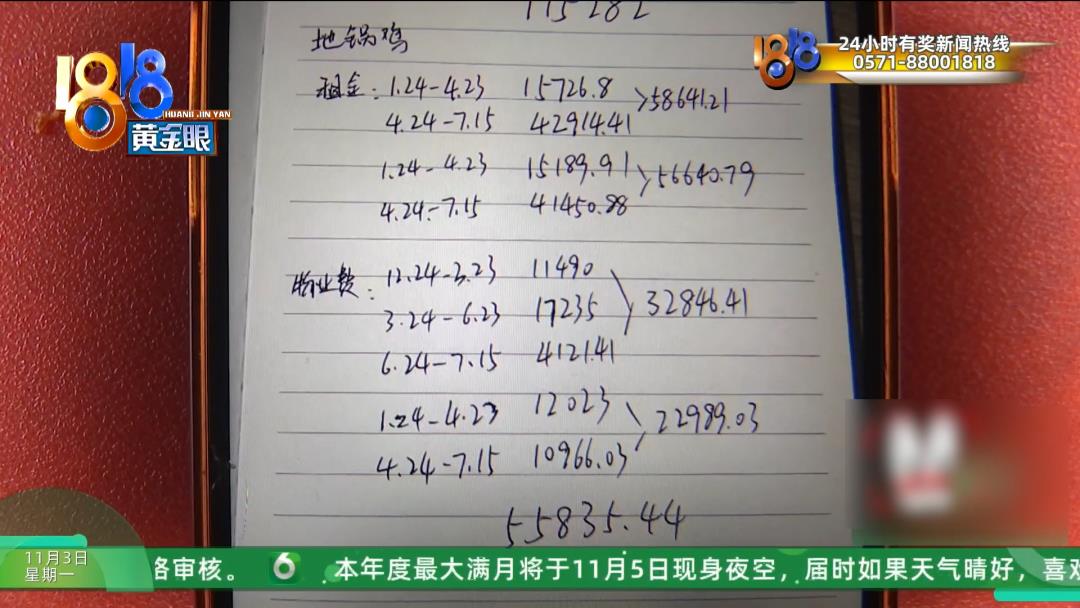 115282
地锅鸡
租金: 1.24-4.23 15726.8 >58641.21
4.24-7.15 42914.41
1.24-4.23 15189.91 >56640.79
4.24-7.15 41450.88
物业费: 12.24-3.23 11490
3.24-6.23 17235 32846.41
6.24-7.15 4121.41
1.24-4.23 12023
4.24-7.15 10966.03 22989.03
55835.44
1818
HUANG JIN YAN
黄金眼
1818
24小时有奖新闻热线
0571-88001818
11月3日
星期一
络审核。 6 本年度最大满月将于11月5日现身夜空，届时如果天气晴好，喜欢